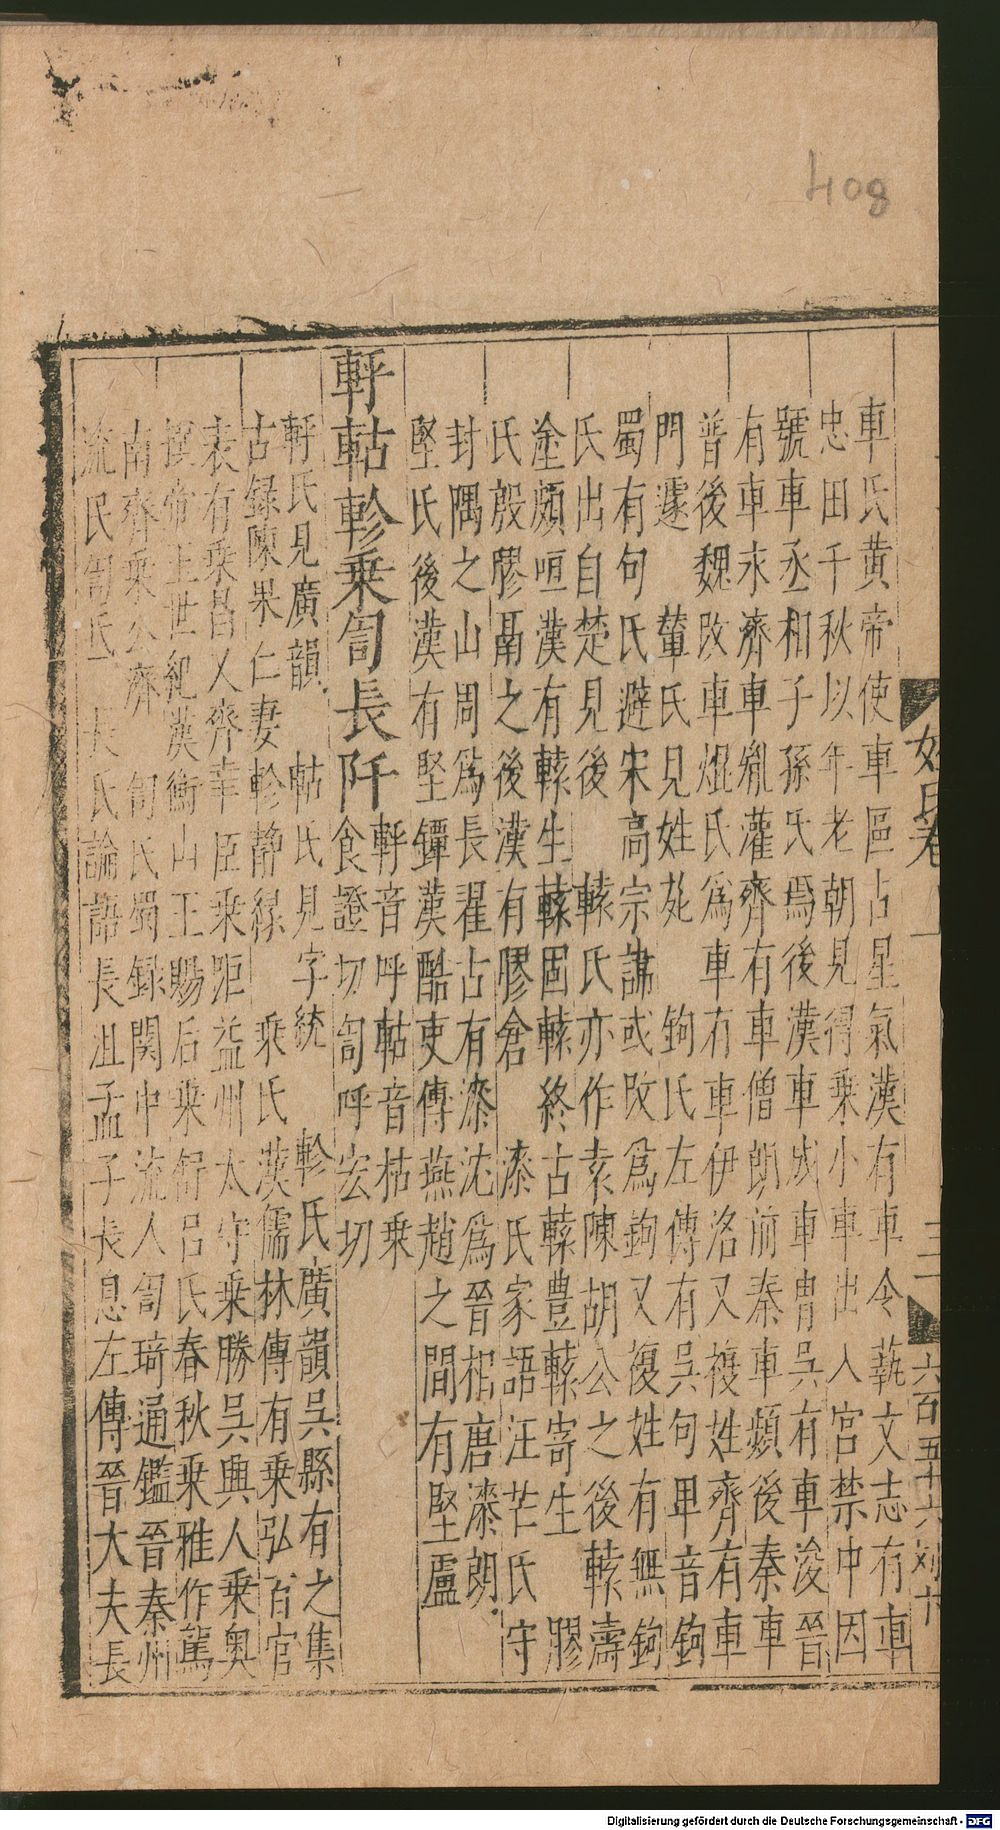 408
車氏黃帝使車區占星氣漢有車令藝文志有車
忠田千秋以年老朝見得乗小車出入宮禁中因
號車丞相子孫氏焉後漢車成車胄吳有車浚晉
有車永濟車胤灌齊有車僧朗前秦車頻後秦車
普後魏改車焜氏爲車有車伊洛又複姓齊有車
門遽　輂氏見姓苑　鉤氏左傳有吳句卑音鉤
蜀有句氏避宋高宗諱或改爲鉤又複姓有無鉤
氏出自楚見後　轅氏亦作袁陳胡公之後轅濤
塗頗咺漢有轅生轅固轅終古轅豊轅寄生　膠
氏殷膠鬲之後漢有膠倉　漆氏家語汪芒氏守
封隅之山周爲長翟古有漆沈爲晉相唐漆朗
堅氏後漢有堅鐔漢酷吏傳燕趙之間有堅盧
軤軲軫乗訇長阡
軤音呼軲音枯乗
食證切訇呼宏切
軤氏見廣韻　軲氏見字統　軫氏廣韻吳縣有之集
古録陳果仁妻軫静緑　乗氏漢儒林傳有乗弘百官
表有乗昌又齊幸臣乗距益州太守乗勝吳興人乗奥
撰帝王世紀漢衡山王賜后乗舒呂氏春秋乗雅作駕
南齊乗公濟　訇氏蜀録関中流人訇琦通鑑晉秦州
流民訇氏　長氏論語長沮孟子長息左傳晉大夫長
姓氏卷
六百五十六
Digitalisierung gefördert durch die Deutsche Forschungsgemeinschaft - DFG